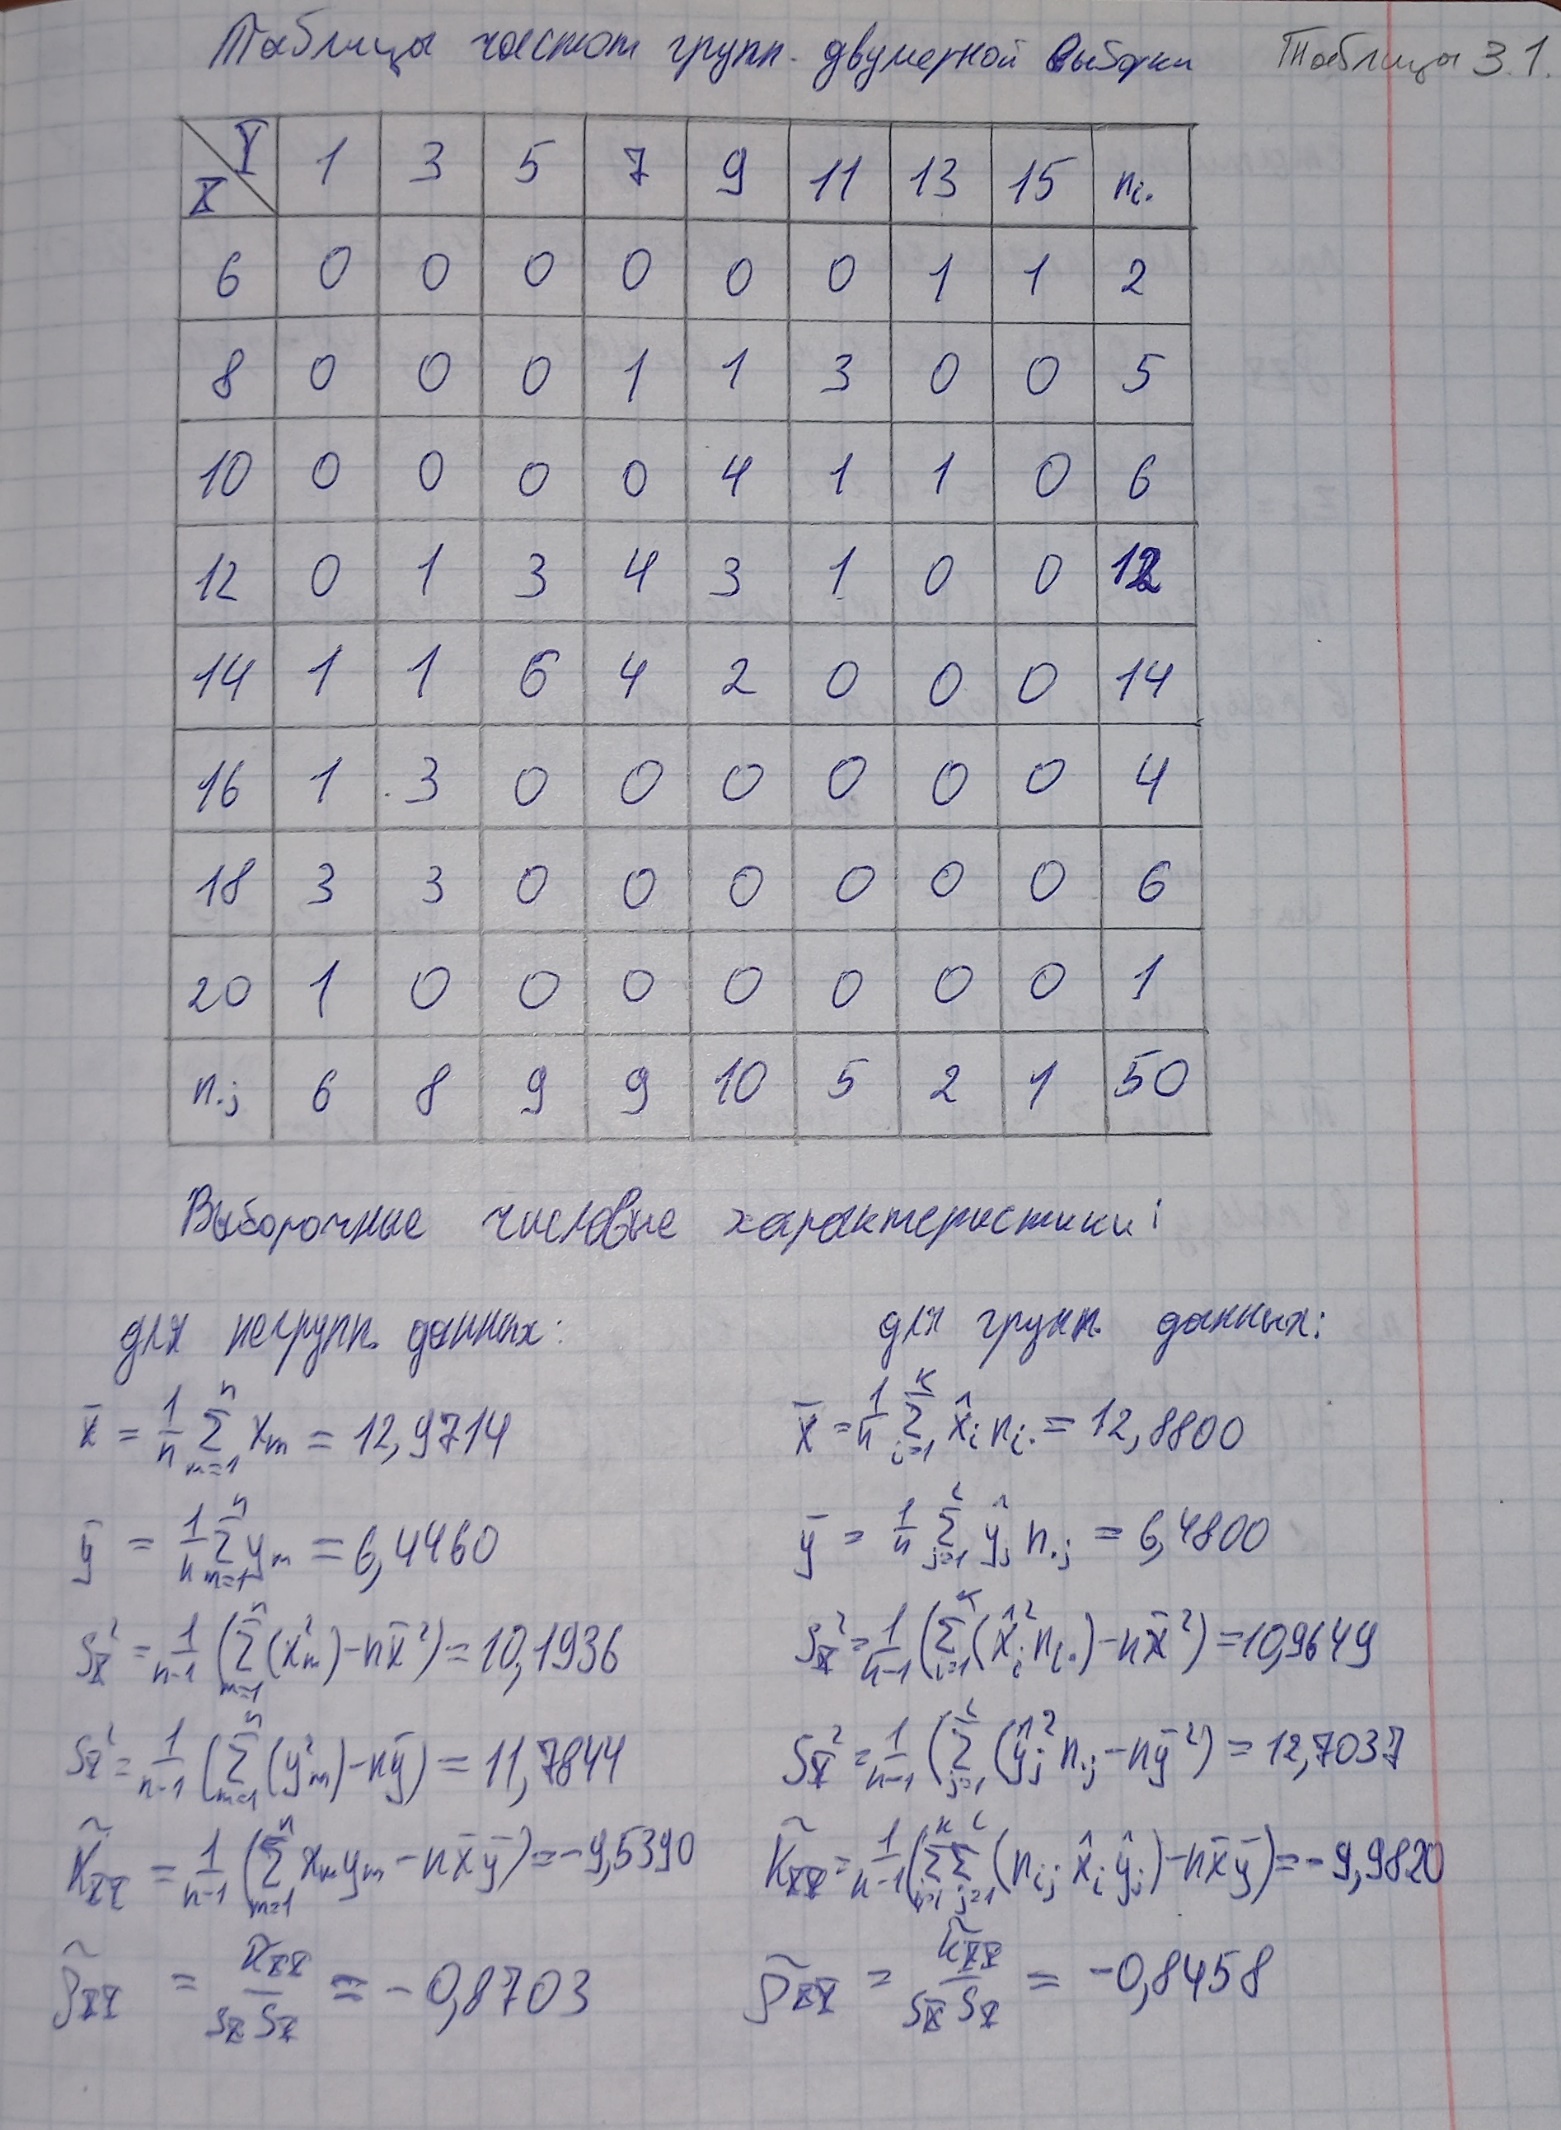 Таблица частот групп. двумерной выборки Таблица 3.1.
X Y 1 3 5 7 9 11 13 15 nᵢ.
6 0 0 0 0 0 0 1 1 2
8 0 0 0 1 1 3 0 0 5
10 0 0 0 0 4 1 1 0 6
12 0 1 3 4 3 1 0 0 12
14 1 1 6 4 2 0 0 0 14
16 1 3 0 0 0 0 0 0 4
18 3 3 0 0 0 0 0 0 6
20 1 0 0 0 0 0 0 0 1
n.ⱼ 6 8 9 9 10 5 2 1 50
Выборочные числовые характеристики:
для негрупп. данных:
x̄ = 1/n Σ_{m=1}^{n} xₘ = 12,9714
ȳ = 1/n Σ_{m=1}^{n} yₘ = 6,4460
S_X² = 1/(n-1) (Σ_{m=1}^{n} (xₘ²) - nx̄²) = 10,1936
S_Y² = 1/(n-1) (Σ_{m=1}^{n} (yₘ²) - nȳ) = 11,7844
K̃_XY = 1/(n-1) (Σ_{m=1}^{n} xₘyₘ - nx̄ȳ) = -9,5390
ρ̃_XY = K̃_XY / (S_X S_Y) = -0,8703
для групп. данных:
x̄ = 1/n Σ_{i=1}^{K} x̂ᵢ nᵢ. = 12,8800
ȳ = 1/n Σ_{j=1}^{L} ŷⱼ n.ⱼ = 6,4800
S_X² = 1/(n-1) (Σ_{i=1}^{K} (x̂ᵢ² nᵢ.) - nx̄²) = 10,9649
S_Y² = 1/(n-1) (Σ_{j=1}^{L} (ŷⱼ² n.ⱼ - nȳ²) = 12,7037
K̃_XY = 1/(n-1) (Σ_{i=1}^{K} Σ_{j=1}^{L} (nᵢⱼ x̂ᵢ ŷⱼ) - nx̄ȳ) = -9,9820
ρ̃_XY = K̃_XY / (S_X S_Y) = -0,8458